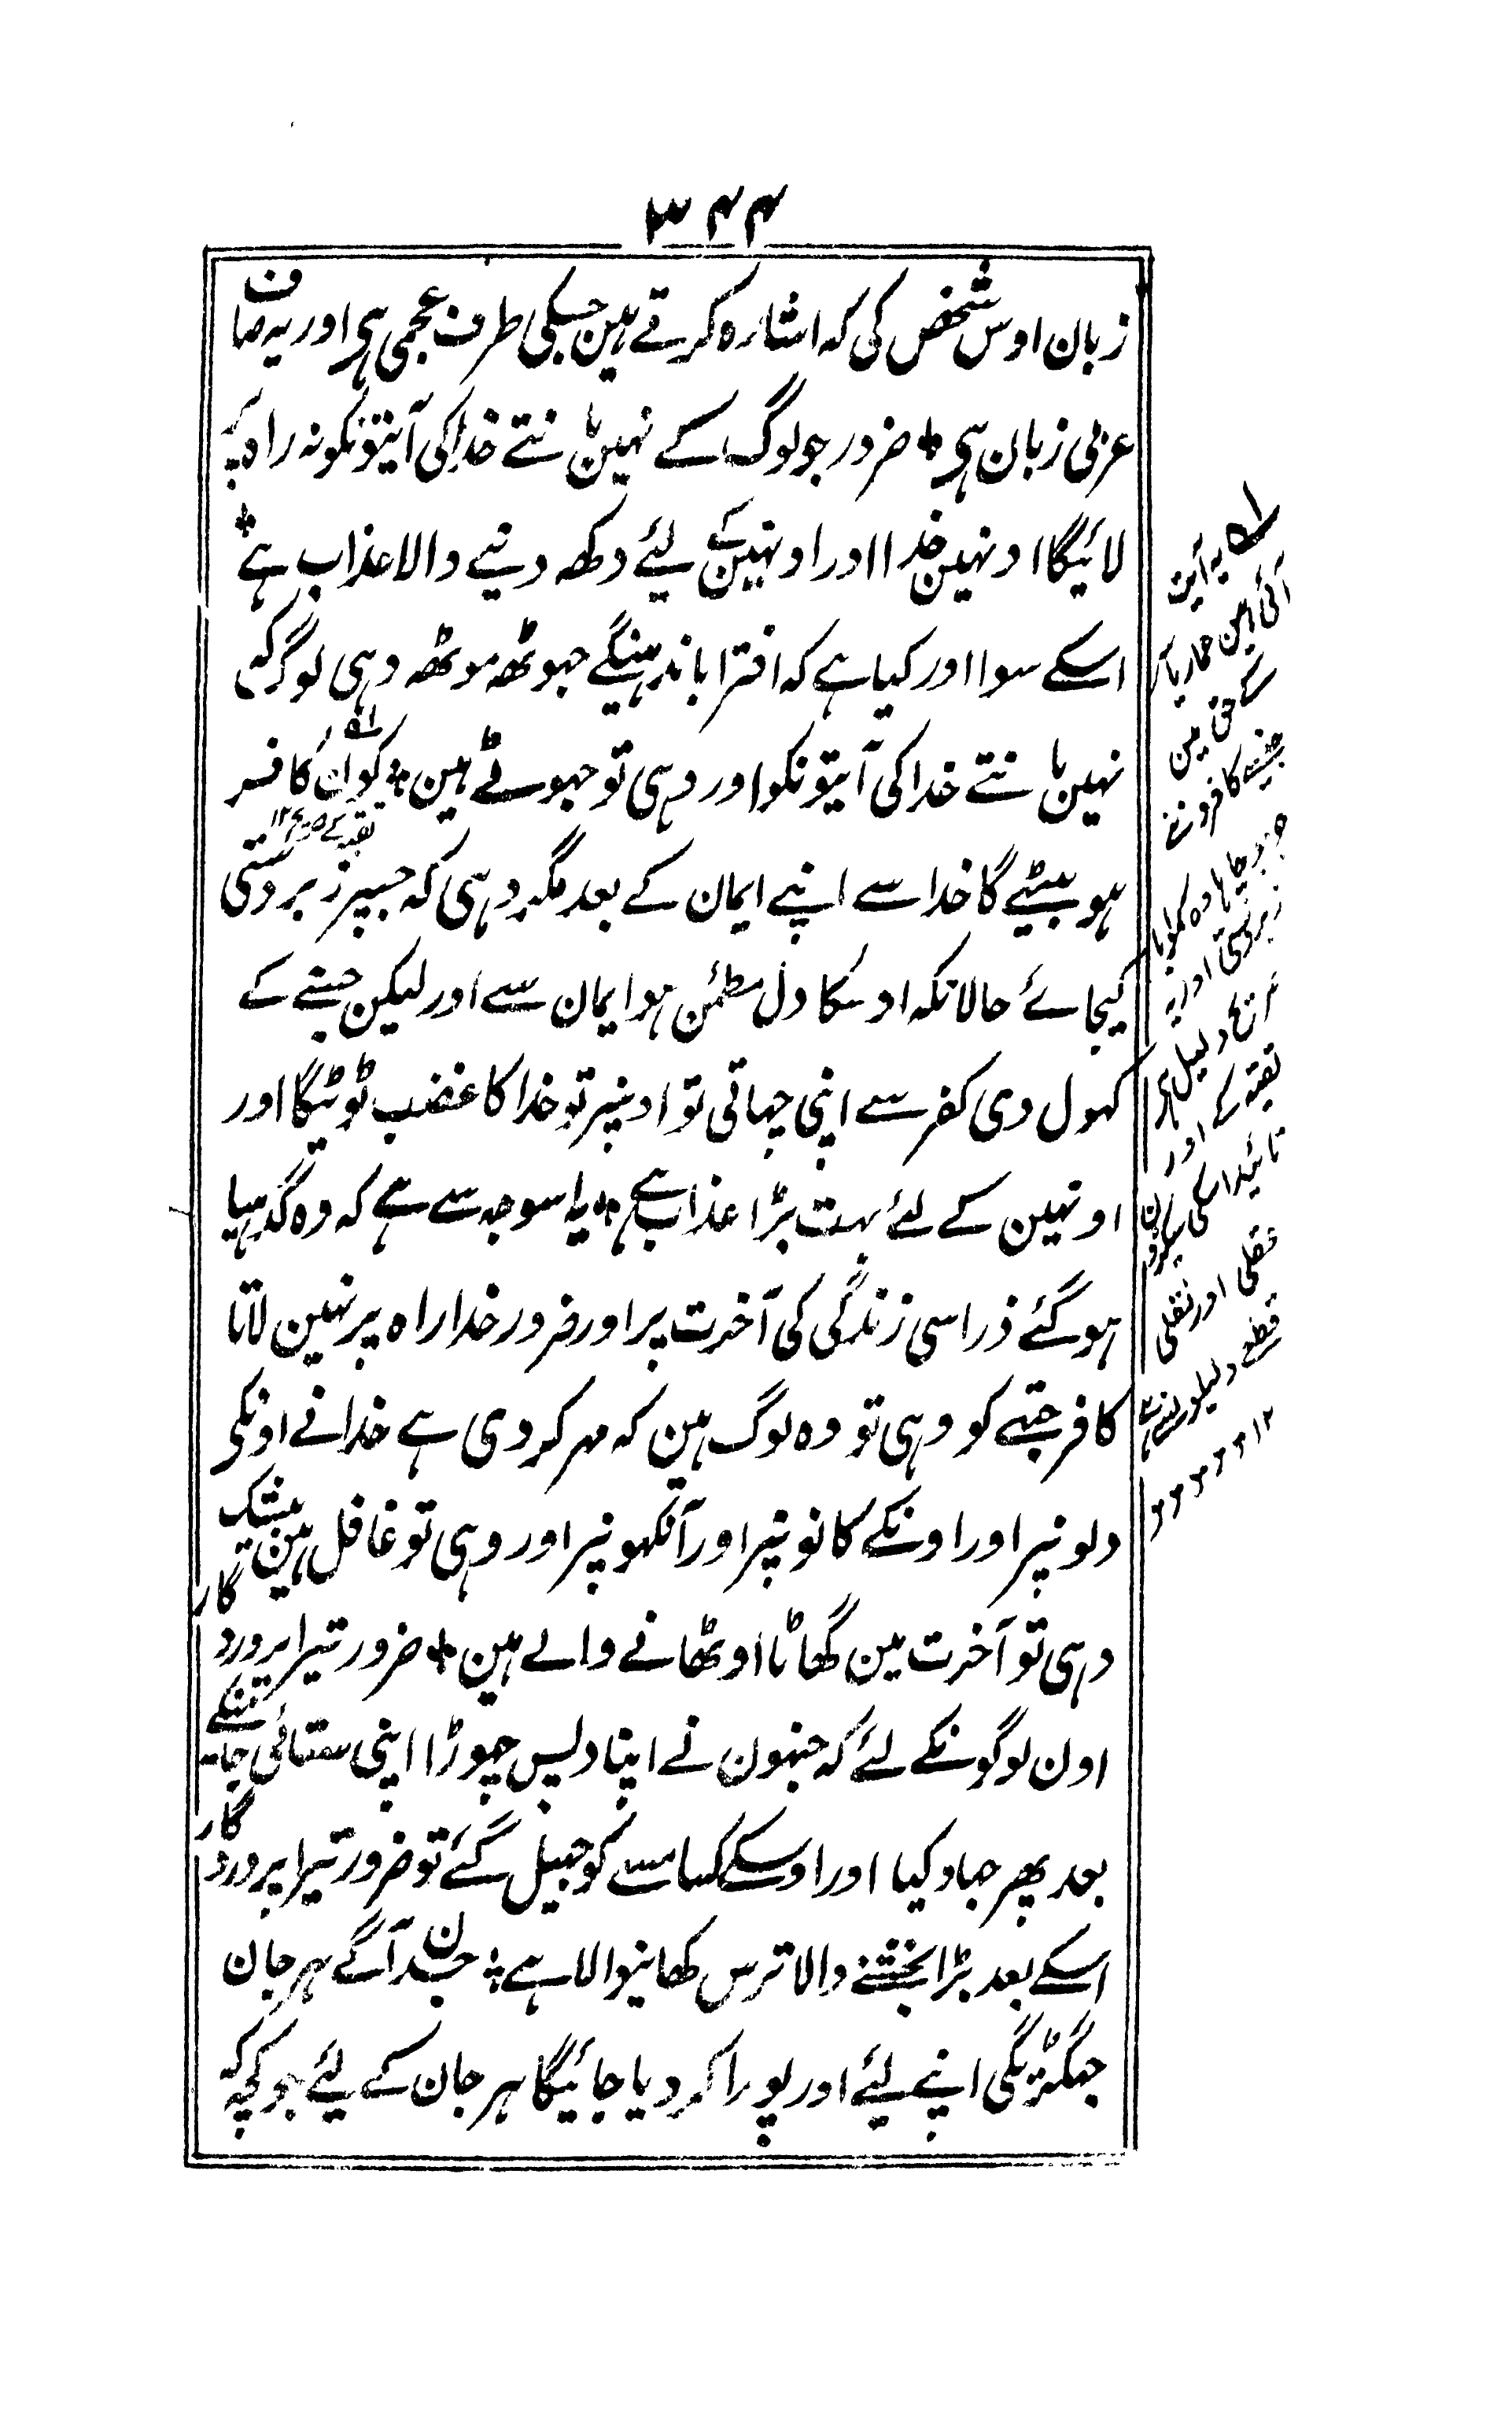 ۳۴۴
زبان اوس شخص کی کہ اشارہ کرتے ہین جسکی طرف عجمی ہی اور یہ صاف
عربی زبان ہی ٭ ضرور جو لوگ کے نہین مانتے خدا کی آیتونکو نہ راہ پر
لائیگا اونہین خدا اور اونہین کے لئے دکھہ دینے والا عذاب ہے ٭
اسکے سوا اور کیا ہے کہ افترا باندہینگے جہوٹھہ موٹھہ وہی لوگ کہ
نہین مانتے خدا کی آیتونکو اور وہی تو جہوٹے ہین ٭ کوان کافر
ہو بیٹھے گا خدا سے اپنے ایمان کے بعد مگر وہی کہ جسپر زبردستی
کیجائے حالانکہ اوسکا دل مطمئن ہو ایمان سے اور لیکن جسنے کے
کہول دی کفر سے اپنی چہاتی تو اونپر تو خدا کا غضب ٹوٹیگا اور
اونہین کے لئے بہت بڑا عذاب ہے ٭ یہ اسوجہ سے ہے کہ وہ گدہیا
ہوگئے ذراسی زندگی کی آخرت پر اور ضرور خدا راہ پر نہین لاتا
کافر جتھے کو وہی تو وہ لوگ ہین کہ مہر کر دی ہے خدا نے اونکی
دلونپر اور اونکے کانونپر اور آنکہونپر اور وہی تو غافل ہین بیشک
وہی تو آخرت مین گھاٹا اوٹھانے والے ہین ٭ ضرور تیرا پروردگار
اون لوگونکے لئے کہ جنہون نے اپنا دیس چہوڑا اپنی ستائی جانیکے
بعد پھر جہاد کیا اور اوسکے کو جہیل گئے تو ضرور تیرا پروردگار
اسکے بعد بڑا بخشنے والا ترس کھانیوالا ہے ٭ جسدن آگے ہر جان
جہگڑیگی اپنے لئے اور پورا کر دیا جائیگا ہر جان کے لئے جو کچہ کہ
یہ آیتین
آئی ہین عمار یاسر
کے حق مین
جنسے کافرونے
جو چاہا وہ کہوایا
زبردستی اور یہ
دلیل ہی
تقیّہ کے اور
تائید اسکی سیکڑون
عقلی اور نقلی
قطعے دلیلونسے ہی
۱۲